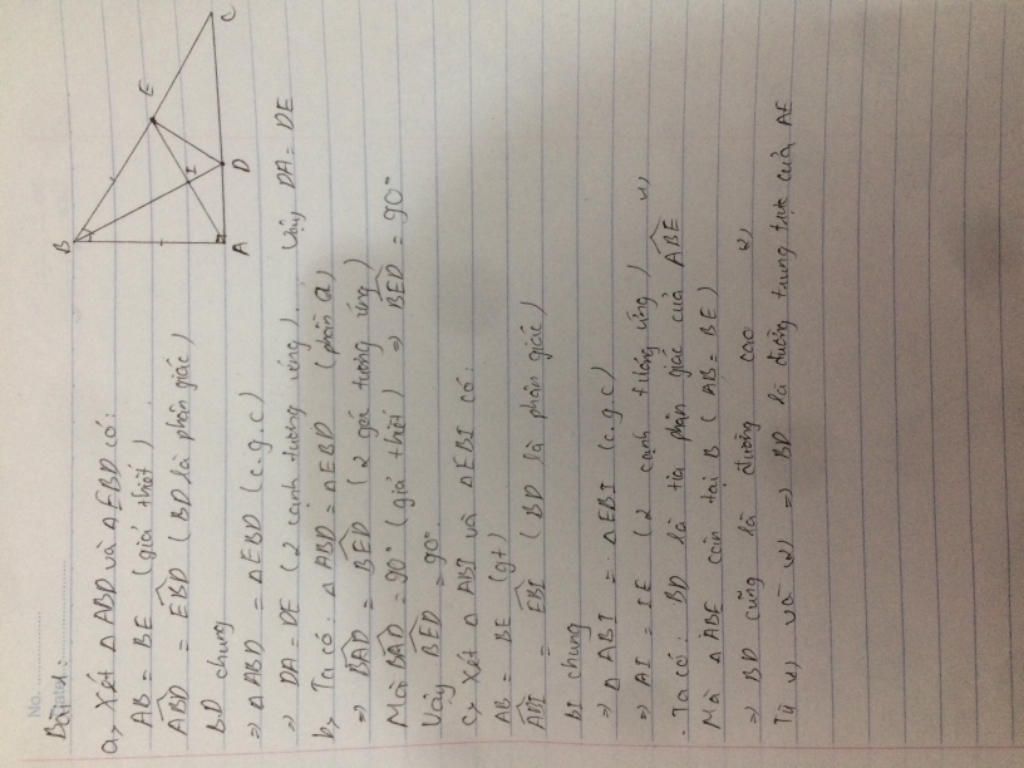 No.
Bài
B
E
C
I
A
D
a, Xét Δ ABD và Δ EBD có:
AB = BE (giả thiết)
ABD = EBD (BD là phân giác)
BD chung
⇒ Δ ABD = Δ EBD (c.g.c)
⇒ DA = DE (2 cạnh tương ứng). Vậy DA = DE
b, Ta có: Δ ABD = Δ EBD (phần a)
⇒ BAD = BED (2 góc tương ứng)
Mà BAD = 90° (giả thiết) ⇒ BED = 90°
Vậy BED = 90°
c, Xét Δ ABI và Δ EBI có:
AB = BE (gt)
ABI = EBI (BD là phân giác)
BI chung
⇒ Δ ABI = Δ EBI (c.g.c)
⇒ AI = IE (2 cạnh tương ứng)
- Ta có: BD là tia phân giác của ABE
Mà Δ ABE cân tại B (AB = BE)
⇒ BD cũng là đường cao
Từ và ⇒ BD là đường trung trực của AE